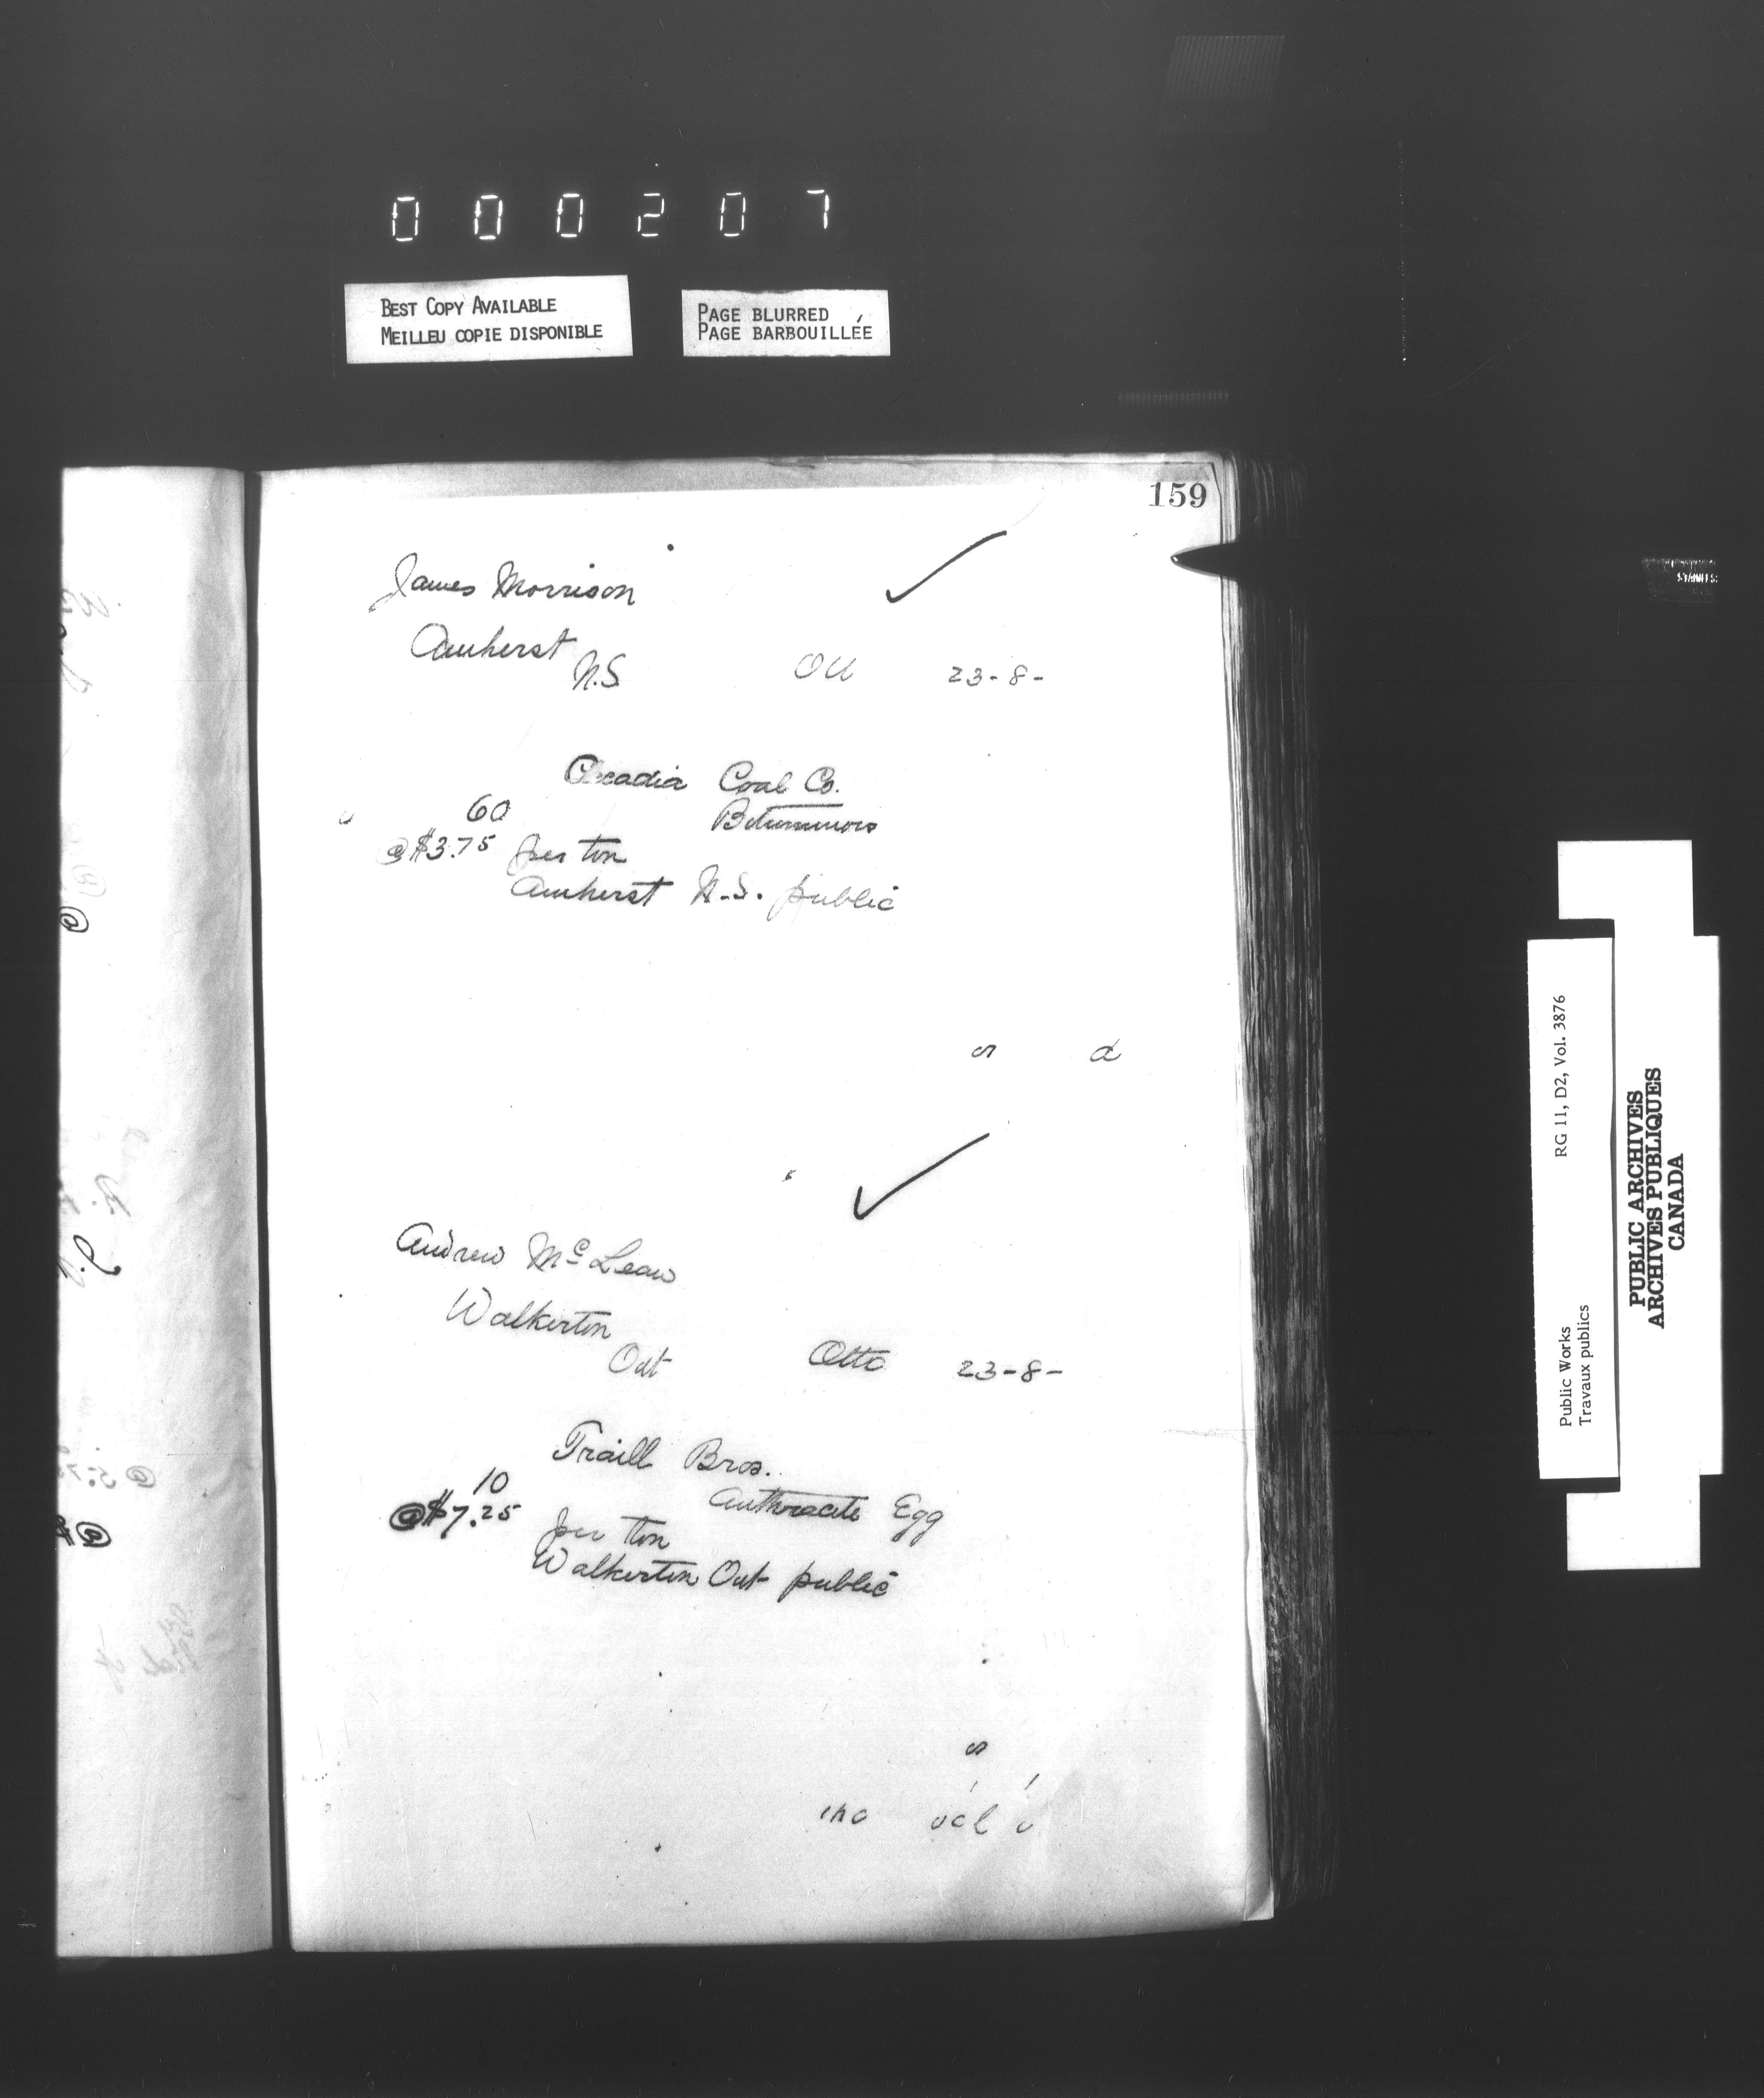 000207
BEST COPY AVAILABLE
MEILLEU COPIE DISPONIBLE
PAGE BLURRED
PAGE BARBOUILLÉE
159
James Morrison
Amherst
N.S. 23-8-
Acadia Coal Co.
60 Bituminous
@ $3.75 per ton
Amherst N.S. public
Andrew McLean
Walkerton
Ont Otto 23-8-
Traill Bros.
10 Anthracite Egg
@ $7.25 per ton
Walkerton Ont public
Public Works RG 11, D2, Vol. 3876
Travaux publics
PUBLIC ARCHIVES
ARCHIVES PUBLIQUES
CANADA